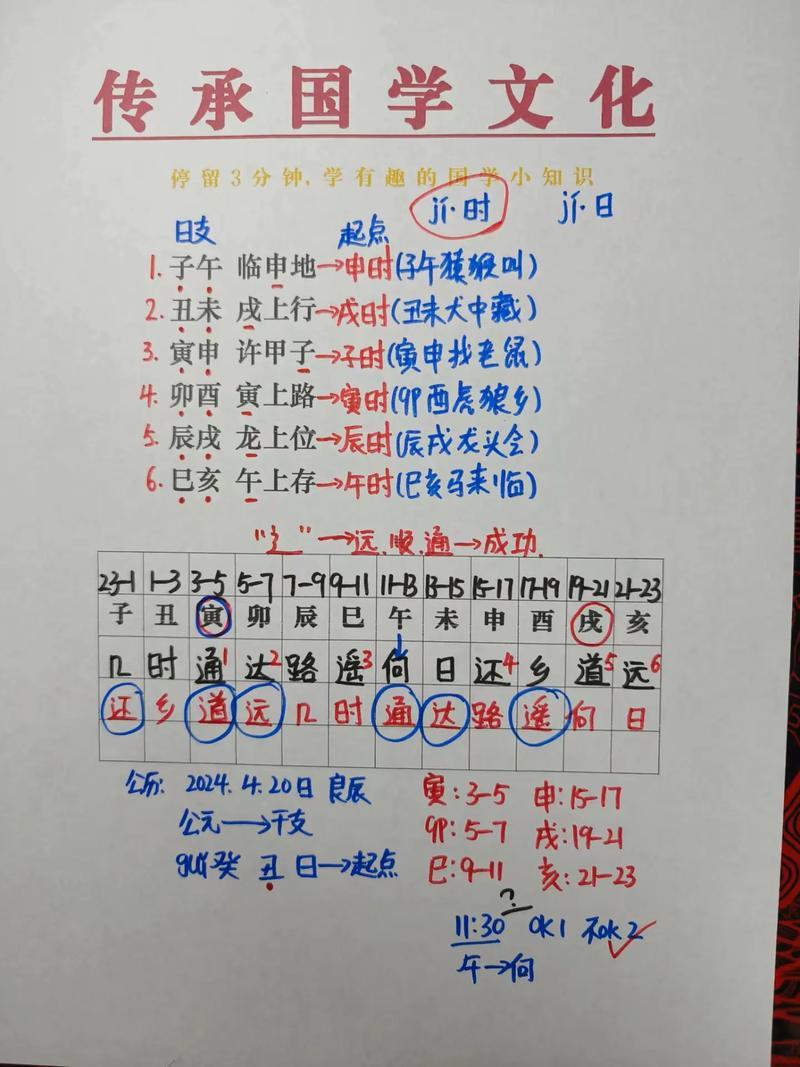 传承国学文化
停留3分钟,学有趣的国学小知识
jí·时 jí·日
日支 起点
1.子午 临申地→申时(子午猿猴叫)
2.丑未 戌上行→戌时(丑未犬中藏)
3.寅申 许甲子→子时(寅申找老鼠)
4.卯酉 寅上路→寅时(卯酉虎狼乡)
5.辰戌 龙上位→辰时(辰戌龙头会)
6.巳亥 午上存→午时(巳亥马来临)
"辶"→远.顺.通→成功.
23-1 1-3 3-5 5-7 7-9 9-11 11-13 13-15 15-17 17-19 19-21 21-23
子 丑 寅 卯 辰 巳 午 未 申 酉 戌 亥
几 时 通1 达2 路 遥3 何 日 还4 乡 道5 远6
还 乡 道 远 几 时 通 达 路 遥 何 日
公历: 2024.4.20日 良辰
公元→干支
guǐ癸 丑 日→起点
寅:3-5 申:15-17
卯:5-7 戌:19-21
巳:9-11 亥:21-23
?
11:30 OK1 不ok2
午→何